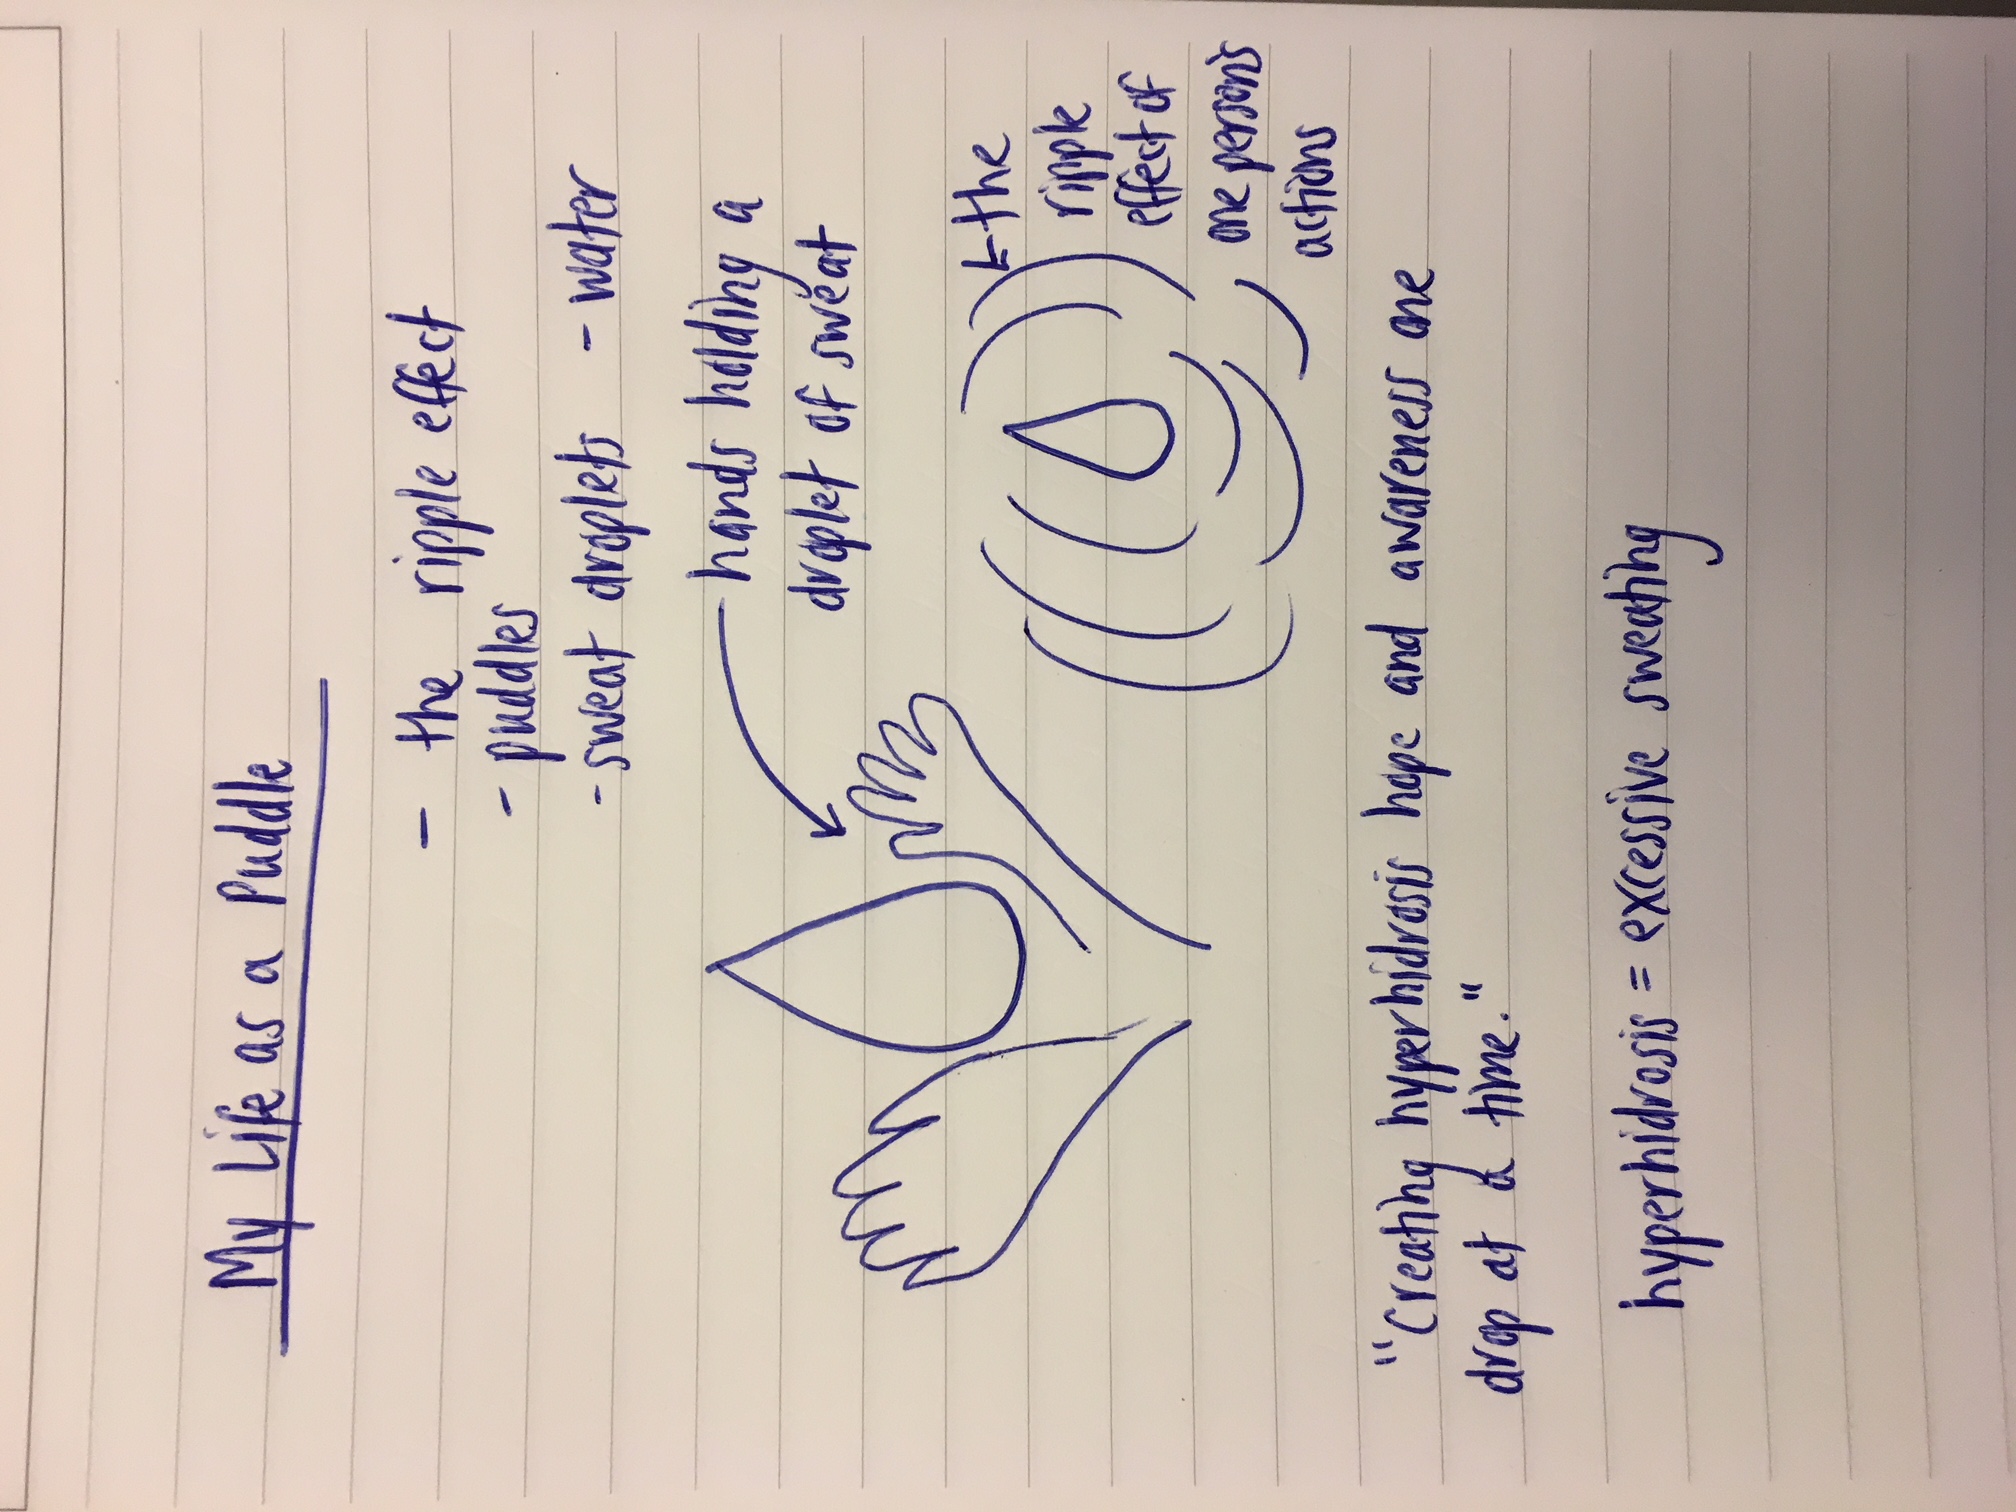 My Life as a Puddle
- the ripple effect
- puddles
- sweat droplets - water
hands holding a
droplet of sweat
the
ripple
effect of
one person's
actions
"Creating hyperhidrosis hope and awareness one
drop at a time."
hyperhidrosis = excessive sweating